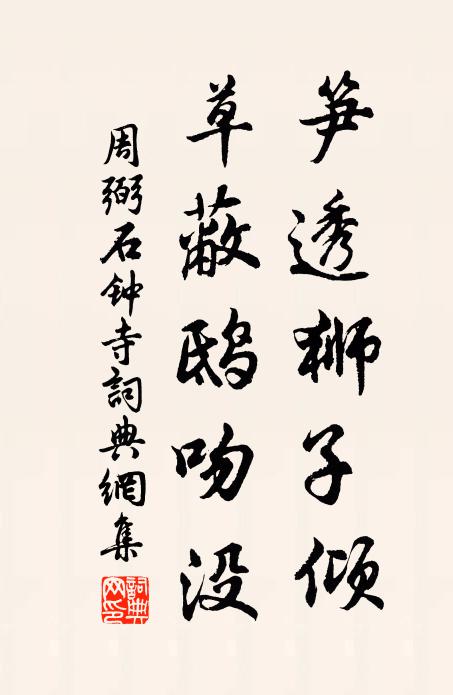 笋透狮子倾
草蔽鸱吻没
周弼石钟寺詞典網集
詞典网印